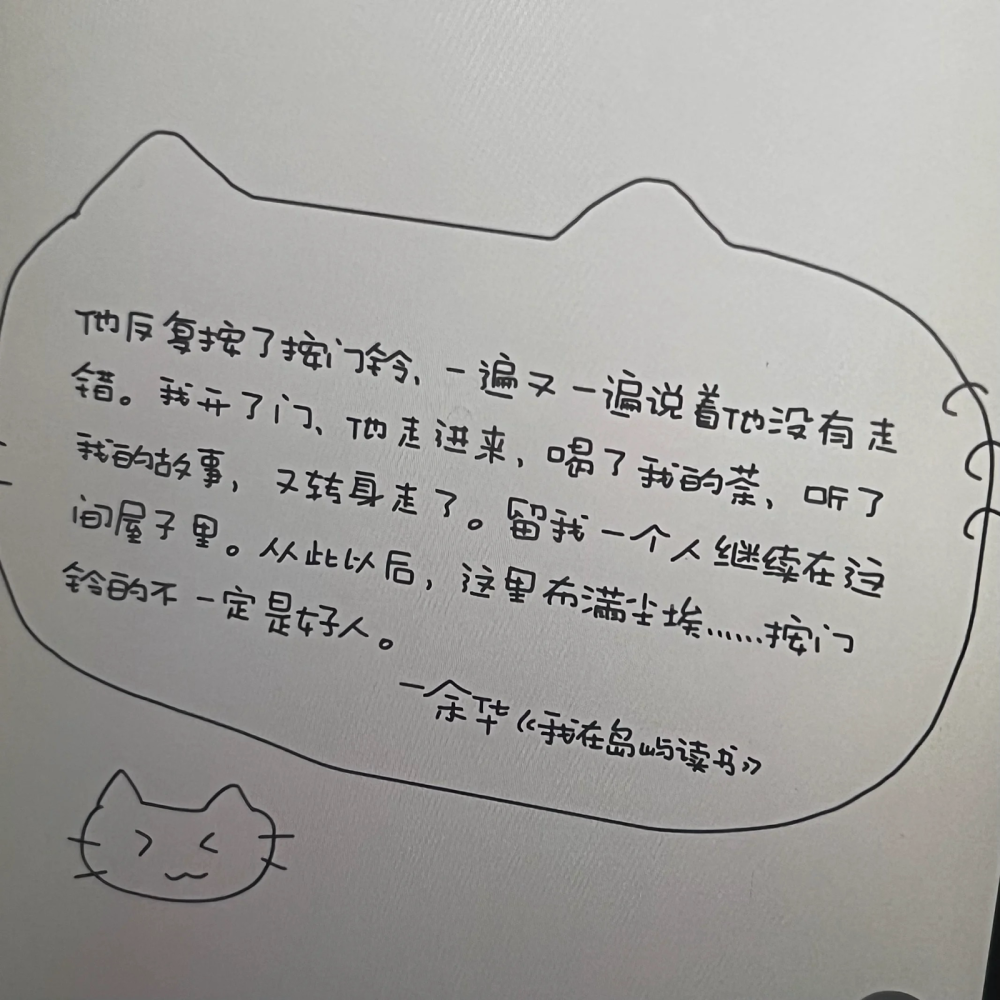 他反复按了按门铃、一遍又一遍说着他没有走
错。我开了门、他走进来，喝了我的茶，听了
我的故事，又转身走了。留我一个人继续在这
间屋子里。从此以后，这里布满尘埃……按门
铃的不一定是好人。
—余华《我在岛屿读书》